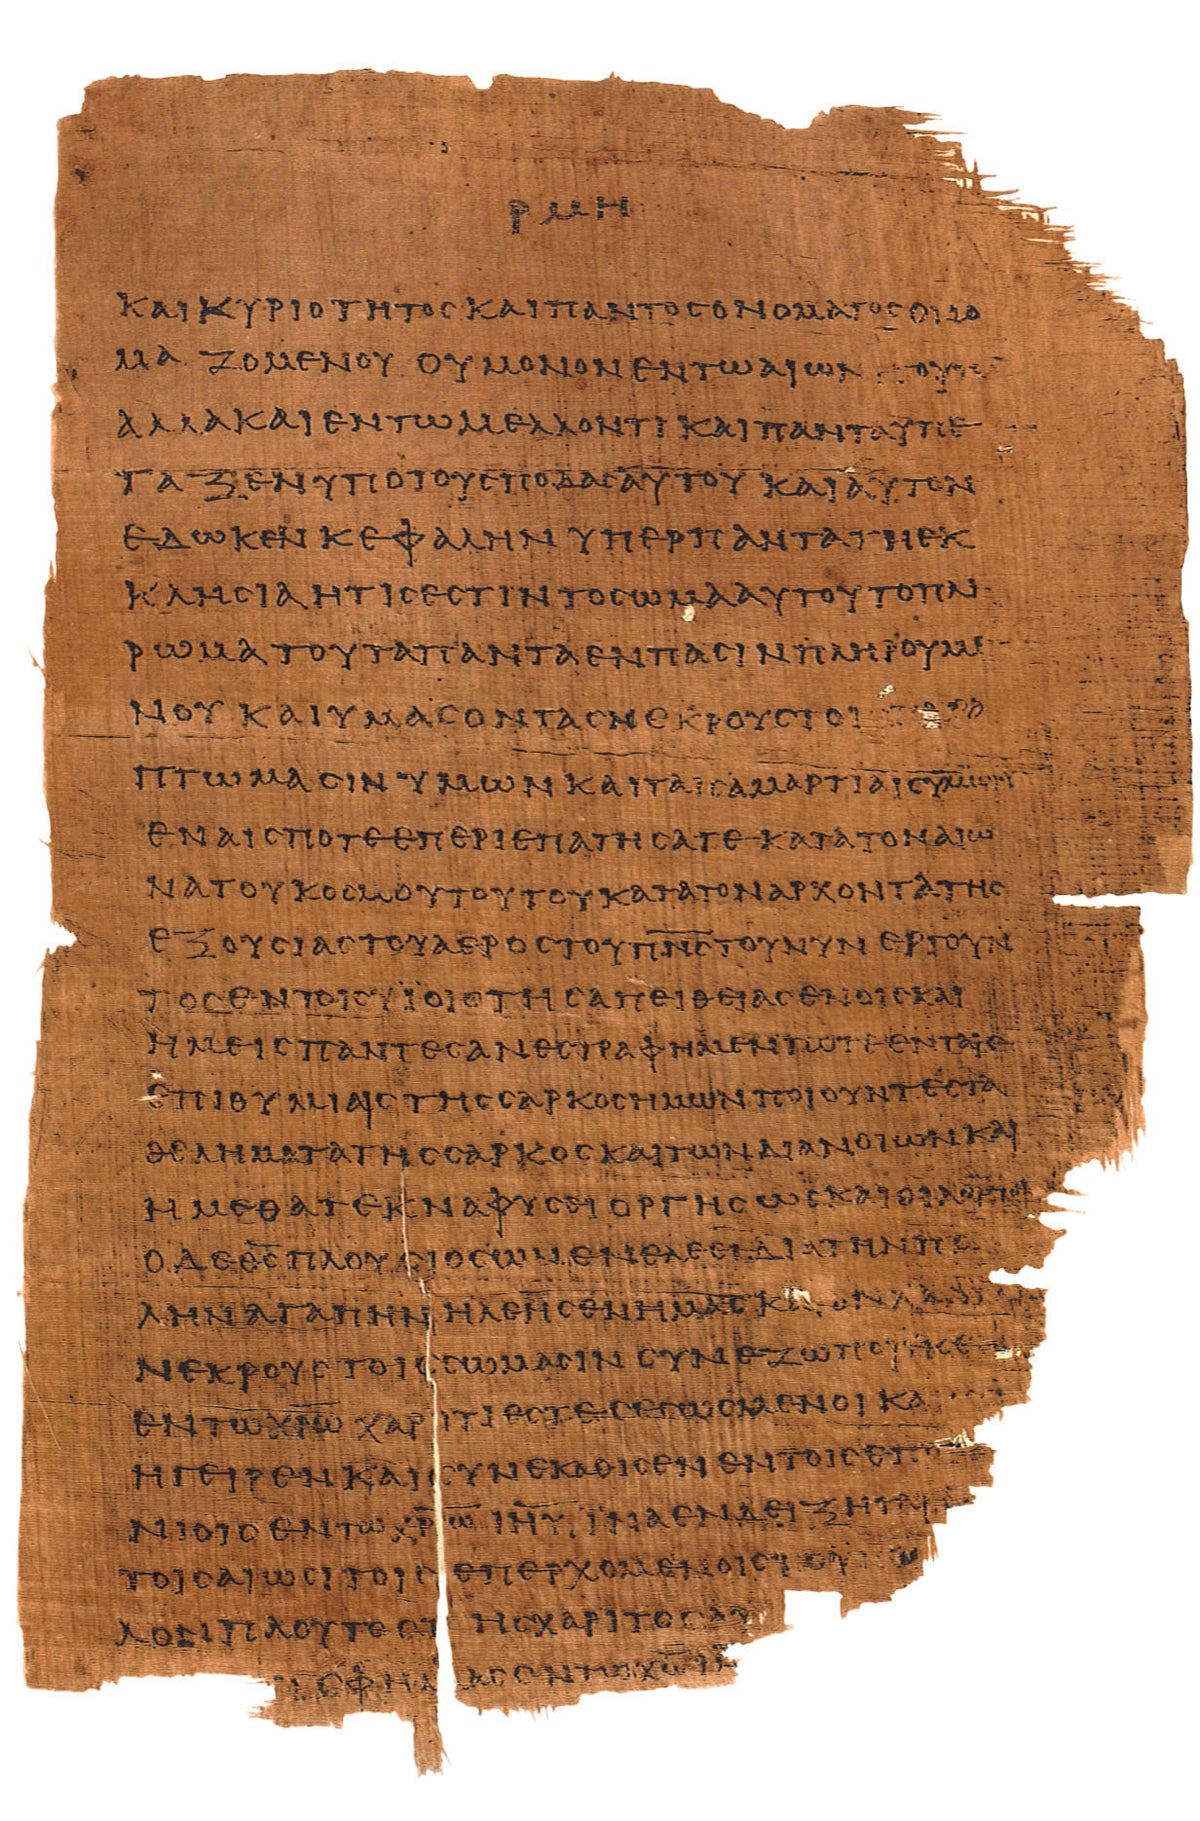 ΡΜΗ
ΚΑΙΚΥΡΙΟΤΗΤΟСΚΑΙΠΑΝΤΟСΟΝΟΜΑΤΟС
ΜΑΖΟΜΕΝΟΥ ΟΥΜΟΝΟΝΕΝΤΩΑΙΩΝ ΤΟΥΤ
ΑΛΛΑΚΑΙΕΝΤΩΜΕΛΛΟΝΤΙ ΚΑΙΠΑΝΤΑΥΠΕ
ΤΑΞΕΝΥΠΟΤΟΥСΠΟΔΑСΑΥΤΟΥ ΚΑΙΑΥΤΟΝ
ΕΔΩΚΕΝΚΕΦΑΛΗΝΥΠΕΡΠΑΝΤΑΤΗΕΚ
ΚΛΗСΙΑΗΤΙСΕСΤΙΝΤΟСΩΜΑΑΥΤΟΥΤΟΠΛΗ
ΡΩΜΑΤΟΥΤΑΠΑΝΤΑΕΝΠΑСΙΝΠΛΗΡΟΥΜΕ
ΝΟΥ ΚΑΙΥΜΑСΟΝΤΑСΝΕΚΡΟΥСΤΟΙ
ΠΤΩΜΑСΙΝΥΜΩΝΚΑΙΤΑΙСΑΜΑΡΤΙΑΙСΥΜΩΝ
ΕΝΑΙСΠΟΤΕΕΠΕΡΙΕΠΑΤΗСΑΤΕΚΑΤΑΤΟΝΑΙΩ
ΝΑΤΟΥΚΟСΜΟΥΤΟΥΤΟΥΚΑΤΑΤΟΝΑΡΧΟΝΤΑΤΗС
ΕΞΟΥСΙΑСΤΟΥΑΕΡΟСΤΟΥΠ̅Ν̅С̅ΤΟΥΝΥΝ ΕΡΓΟΥΝ
ΤΟСΕΝΤΟΙСΥΪΟΙСΤΗСΑΠΕΙΘΕΙΑСΕΝΟΙСΚΑΙ
ΗΜΕΙСΠΑΝΤΕСΑΝΕСΤΡΑΦΗΜΕΝΠΟΤΕΕΝΤΑΙС
ΕΠΙΘΥΜΙΑΙСΤΗССΑΡΚΟСΗΜΩΝΠΟΙΟΥΝΤΕСΤΑ
ΘΕΛΗΜΑΤΑΤΗССΑΡΚΟСΚΑΙΤΩΝΔΙΑΝΟΙΩΝΚΑΙ
ΗΜΕΘΑΤΕΚΝΑΦΥСΕΙΟΡΓΗСΩСΚΑΙΟΙΛΟΙΠΟΙ
ΟΔΕΘ̅С̅ΠΛΟΥСΙΟСΩΝΕΝΕΛΕΕΙΔΙΑΤΗΝΠΟ
ΛΗΝΑΓΑΠΗΝΗΛΕΗСΕΝΗΜΑС
ΝΕΚΡΟΥСΤΟΙССΩΜΑСΙΝСΥΝΕΖΩΠΟΙΗСΕ
ΕΝΤΩΧ̅Ρ̅Ω̅ΧΑΡΙΤΙΕСΤΕСΕСΩСΜΕΝΟΙΚΑ
ΗΓΕΙΡΕΝΚΑΙСΥΝΕΚΑΘΙСΕΝΕΝΤΟΙСΕΠΟ
ΝΙΟΙСΕΝΤΩΧ̅Ρ̅Ω̅ΙΗ̅Υ̅ΪΝΑΕΝΔΕΙΞΗΤΑΙ
ΤΟΙСΑΙΩСΙΤΟΙСΕΠΕΡΧΟΜΕΝΟΙС
ΛΟΝΠΛΟΥΤΟСΤΗСΧΑΡΙΤΟСΑΥ
ΕΦΗΜΑСΕΝΤΩΧ̅Ω̅Ι̅Η̅